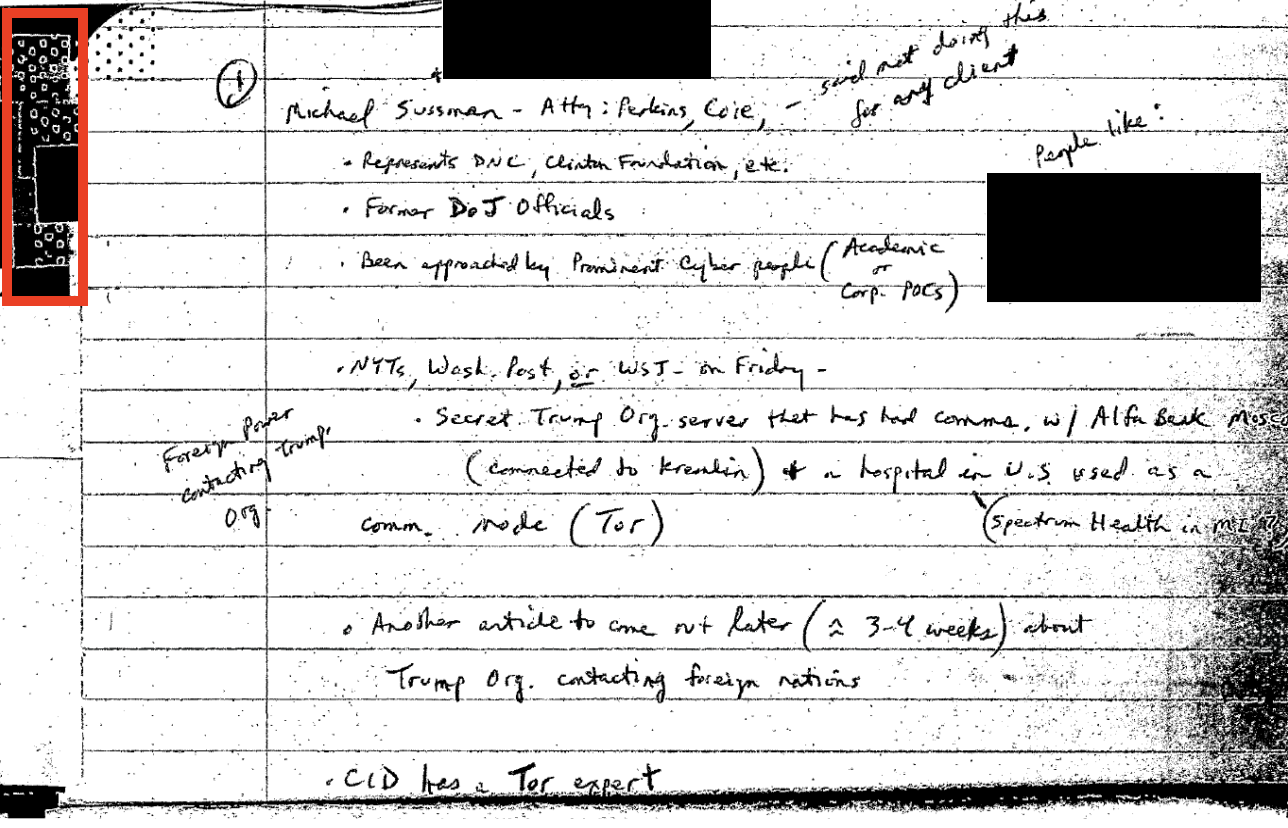 said not doing this
for any client
①
Michael Sussman - Atty: Perkins, Coie, -
People like:
• Represents DNC, Clinton Foundation, etc.
• Former DoJ Officials
• Been approached by Prominent Cyber people (Academic
or
Corp. POCs)
• NYTs, Wash. Post, or WSJ - on Friday -
• Secret Trump Org. server that has had comms. w/ Alfa Bank
Foreign Power
contacting Trump.
Org.
(connected to Kremlin) + a hospital in U.S. used as a
comm. node (Tor)
(Spectrum Health in MI
• Another article to come out later (≈ 3-4 weeks) about
Trump Org. contacting foreign nations
• CID has a Tor expert